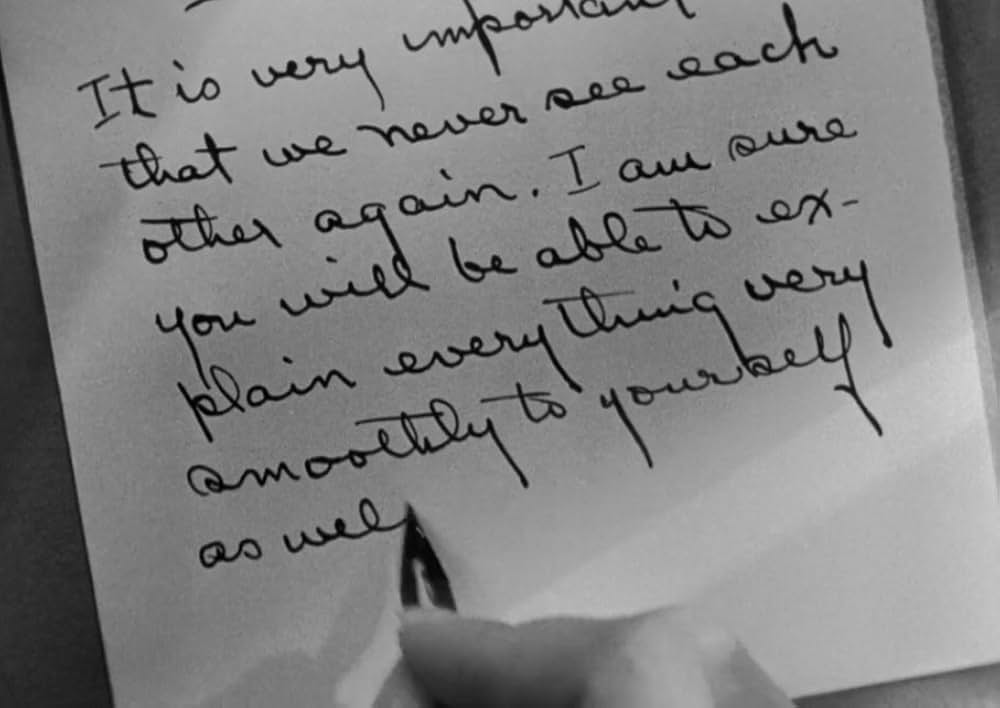 It is very important
that we never see each
other again. I am sure
you will be able to ex-
plain everything very
smoothly to yourself
as wel